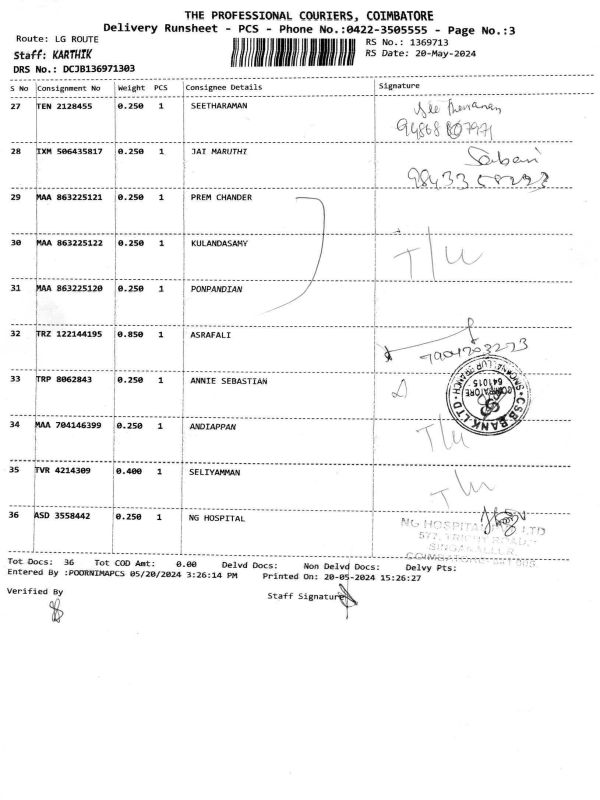 THE PROFESSIONAL COURIERS, COIMBATORE
Delivery Runsheet - PCS - Phone No.:0422-3505555 - Page No.:3
Route: LG ROUTE
RS No.: 1369713
Staff: KARTHIK
RS Date: 20-May-2024
DRS No.: DCJB136971303
S No Consignment No Weight PCS Consignee Details Signature
27 TEN 2128455 0.250 1 SEETHARAMAN
28 IXM 506435817 0.250 1 JAI MARUTHI
29 MAA 863225121 0.250 1 PREM CHANDER
30 MAA 863225122 0.250 1 KULANDASAMY T/U
31 MAA 863225120 0.250 1 PONPANDIAN
32 TRZ 122144195 0.850 1 ASRAFALI
33 TRP 8062843 0.250 1 ANNIE SEBASTIAN
CSB BANK LTD
SINGANALLUR BRANCH
COIMBATORE
641015
34 MAA 704146399 0.250 1 ANDIAPPAN T/U
35 TVR 4214309 0.400 1 SELIYAMMAN T/U
36 ASD 3558442 0.250 1 NG HOSPITAL
NG HOSPITAL LTD
577, TRICHY ROAD,
SINGANALLUR
Tot Docs: 36 Tot COD Amt: 0.00 Delvd Docs: Non Delvd Docs: Delvy Pts:
Entered By :POORNIMAPCS 05/20/2024 3:26:14 PM Printed On: 20-05-2024 15:26:27
Verified By
Staff Signature